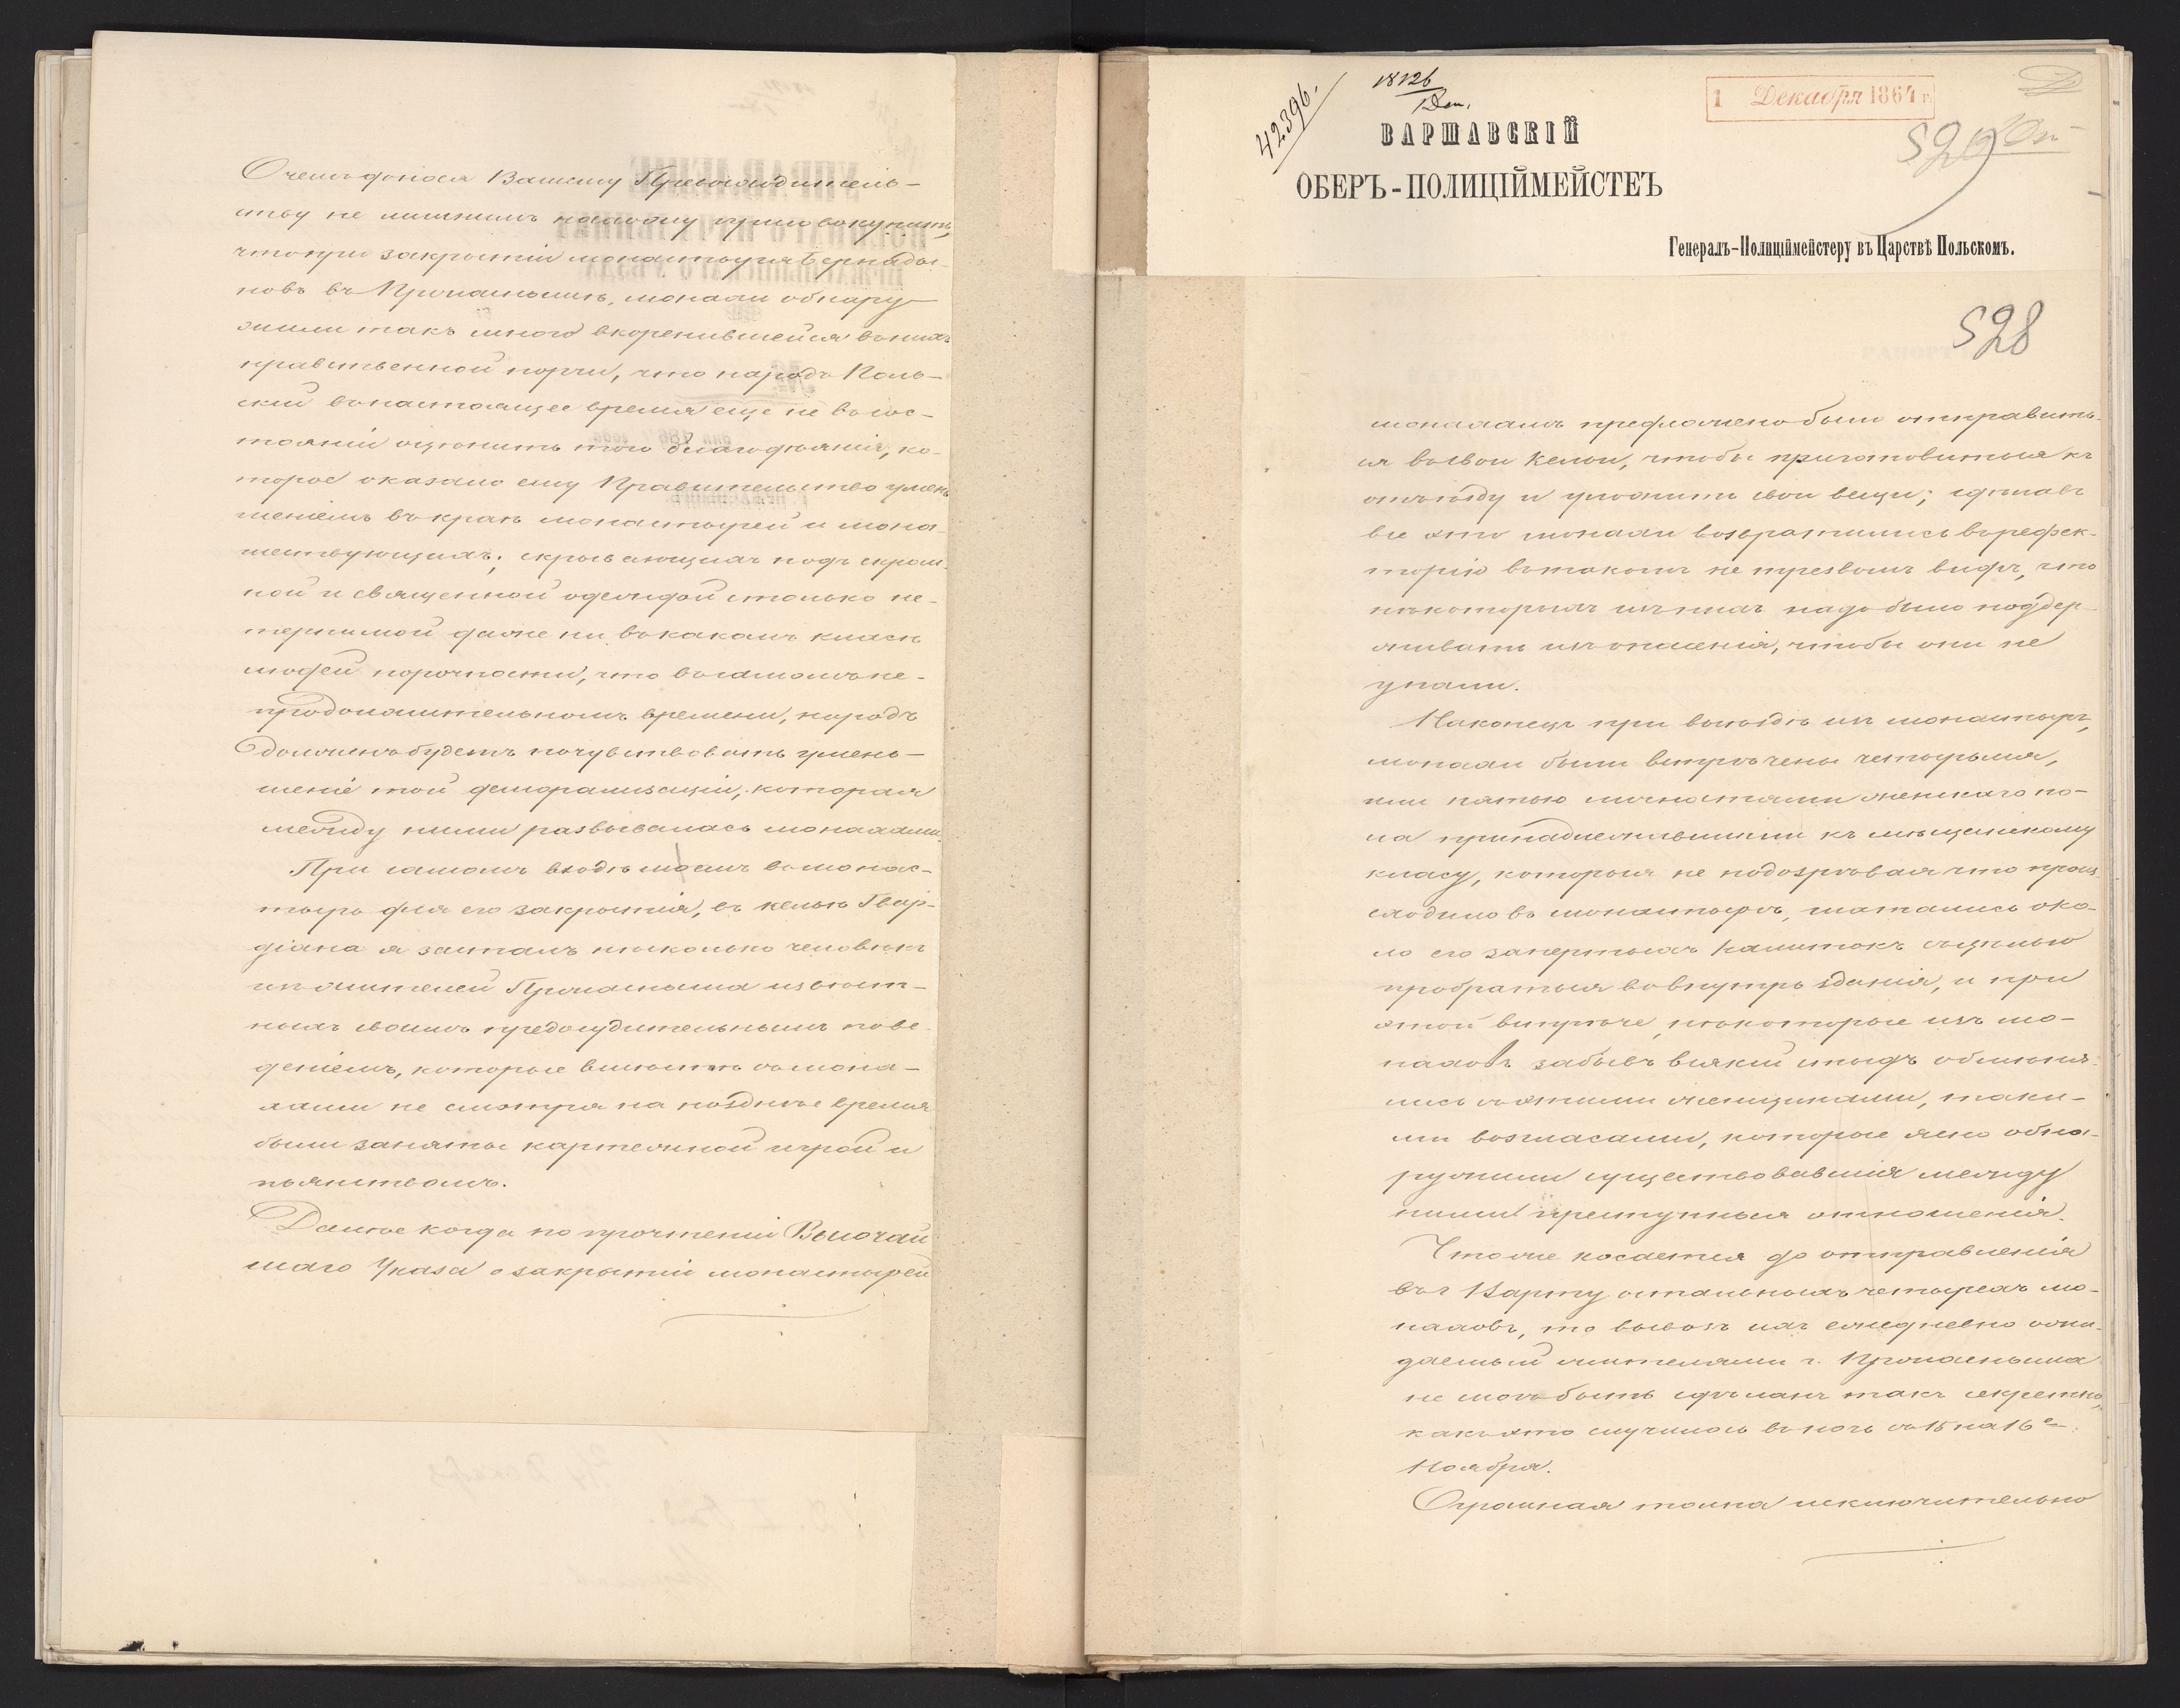 О чемъ донося Вашему Превосходитель-
ству не лишнимъ нахожу присовокупить,
что при закрытіи монастыря Бернарды-
новъ въ Прочаснышъ, монахи обнару-
жили такъ много вкоренившейся въ нихъ
нравственной порчи, что народъ Поль-
скій въ настоящее время еще не въ сос-
тояніи оцѣнить того благодѣянія, ко-
торое оказало ему Правительство умень
шеніемъ въ краѣ монастырей и мона-
шествующихъ; скрывающихъ подъ скром-
ной и священной одеждой столько не-
терпимой даже ни въ какомъ классѣ
людей порочности, что въ самомъ не-
продолжительномъ времени, народъ
долженъ будетъ почувствовать умень-
шеніе той деморализаціи, которая
между ними развивалась монахами.
При самомъ входѣ моемъ въ монас-
тырь для его закрытія, въ кельѣ Гвар-
діана я засталъ нѣсколько человѣкъ
изъ жителей Прочасныша извѣст-
ныхъ своимъ предосудительнымъ пове-
деніемъ, которые вмѣстѣ съ мона-
хами не смотря на позднее время
были заняты картежной игрой и
пьянствомъ.
Далѣе когда по прочтеніи Высочай
шаго Указа о закрытіи монастырей
42396.
18126
1 Дек.
ВАРШАВСКІЙ
ОБЕРЪ-ПОЛИЦІЙМЕЙСТЕЪ
1 Декабря 1864 г.
529
Генералъ-Полиціймейстеру въ Царствѣ Польскомъ.
528
монахамъ предложено было отправить-
ся въ свои кельи, чтобы приготовиться къ
отъѣзду и уложить свои вещи; сдѣлавъ
все это монахи возвратились въ рефек-
торію въ такомъ не трезвомъ видѣ, что
нѣкоторыхъ изъ нихъ надо было поддер-
живать изъ опасенія, чтобы они не
упали.
Наконецъ при выѣздѣ изъ монастыря,
монахи были встрѣчены четырьмя,
или пятью личностями женскаго по-
ла принадлежавшими къ мѣщанскому
класу, которыя не подозрѣвая что проис
ходило въ монастырѣ, шатались око-
ло его запертыхъ калитокъ съ цѣлью
пробраться во внутрь зданія, и при
этой встрѣче, нѣкоторые изъ мо-
наховъ забывъ всякій стыдъ обмѣня-
лись съ этими женщинами, таки-
ми возгласами, которые ясно обна-
ружили существовавшія между
ними преступныя отношенія.
Что же касается до отправленія
въ г. Варту остальныхъ четырехъ мо-
наховъ, то вывозъ ихъ ежедневно ожи-
даемый жителями г. Прочасныша
не могъ быть сдѣланъ такъ секретно,
какъ это случилось въ ночь съ 15 на 16е
Ноября.
Огромная толпа исключительно